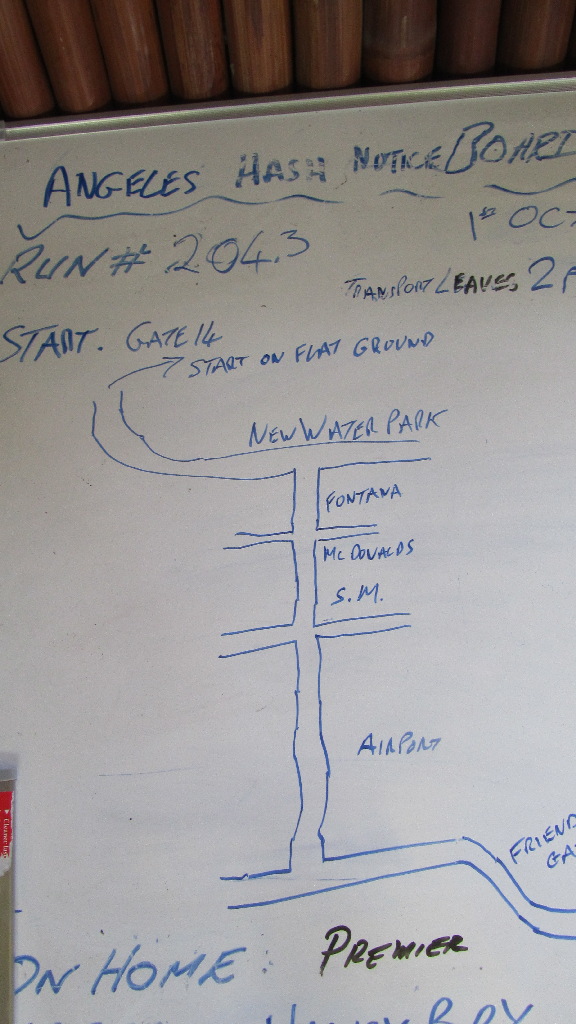 ANGELES HASH NOTICE BOARD
1st OCT
RUN # 2043
TRANSPORT LEAVES 2P
START. GATE 14
START ON FLAT GROUND
NEW WATER PARK
FONTANA
MCDONALDS
S.M.
AIRPORT
FRIEND
GA
ON HOME : PREMIER